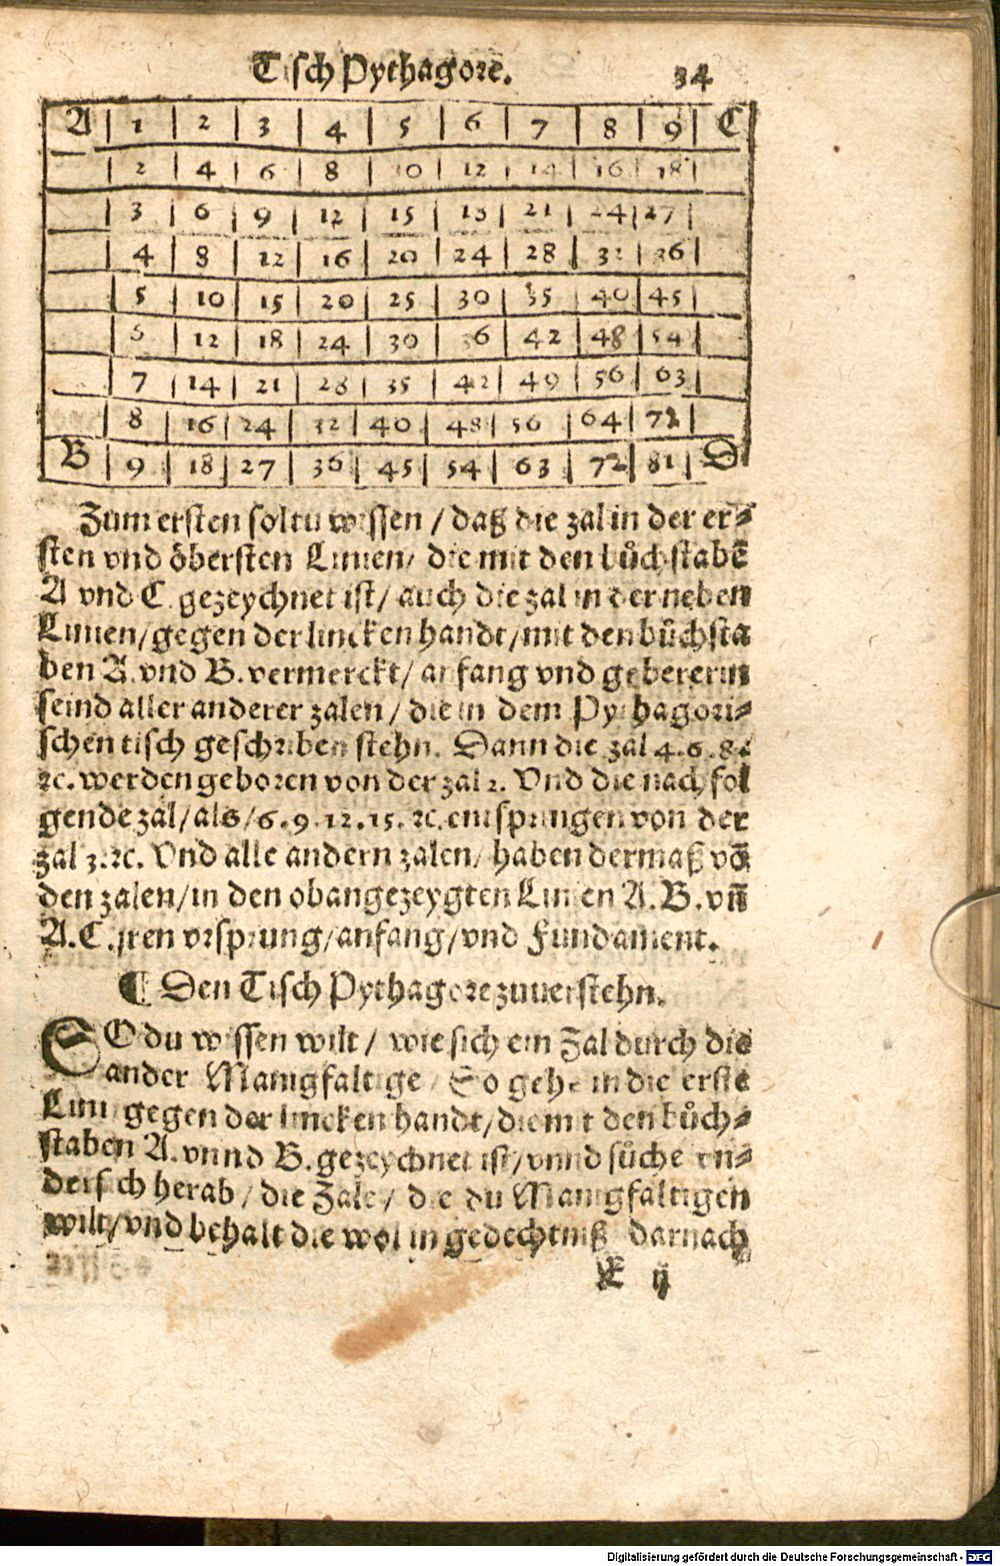 Tisch Pythagorē. 34
A | 1 | 2 | 3 | 4 | 5 | 6 | 7 | 8 | 9 | C
| 2 | 4 | 6 | 8 | 10 | 12 | 14 | 16 | 18 |
| 3 | 6 | 9 | 12 | 15 | 18 | 21 | 24 | 27 |
| 4 | 8 | 12 | 16 | 20 | 24 | 28 | 32 | 36 |
| 5 | 10 | 15 | 20 | 25 | 30 | 35 | 40 | 45 |
| 6 | 12 | 18 | 24 | 30 | 36 | 42 | 48 | 54 |
| 7 | 14 | 21 | 28 | 35 | 42 | 49 | 56 | 63 |
| 8 | 16 | 24 | 32 | 40 | 48 | 56 | 64 | 72 |
B | 9 | 18 | 27 | 36 | 45 | 54 | 63 | 72 | 81 | D
Zum ersten soltu wissen / daß die zal in der er⸗
sten vnd öbersten Linien / die mit den bůchstabē
A vnd C. gezeychnet ist / auch die zal in der neben
Linien / gegen der lincken handt / mit den bůchsta
ben A. vnd B. vermerckt / anfang vnd gebererin
seind aller anderer zalen / die in dem Pythagori⸗
schen tisch geschriben stehn. Dann die zal 4. 6. 8.
ꝛc. werden geboren von der zal 2. Vnd die nachfol
gende zal / als / 6. 9. 12. 15. ꝛc. entspringen von der
zal 3. ꝛc. Vnd alle andern zalen / haben dermaß vō
den zalen / in den obangezeygten Linien A. B. vñ
A. C. jren vrsprung / anfang / vnd Fundament.
¶ Den Tisch Pythagore zuuerstehn.
SO du wissen wilt / wie sich ein Zal durch die
ander Manigfaltige / So gehe in die erste
Lini gegen der lincken handt / die mit den bůch⸗
staben A. vnnd B. gezeychnet ist / vnnd sůche vn⸗
dersich herab / die Zale / die du Manigfaltigen
wilt / vnd behalt die wol in gedechtniß darnach
E ij
Digitalisierung gefördert durch die Deutsche Forschungsgemeinschaft - DFG